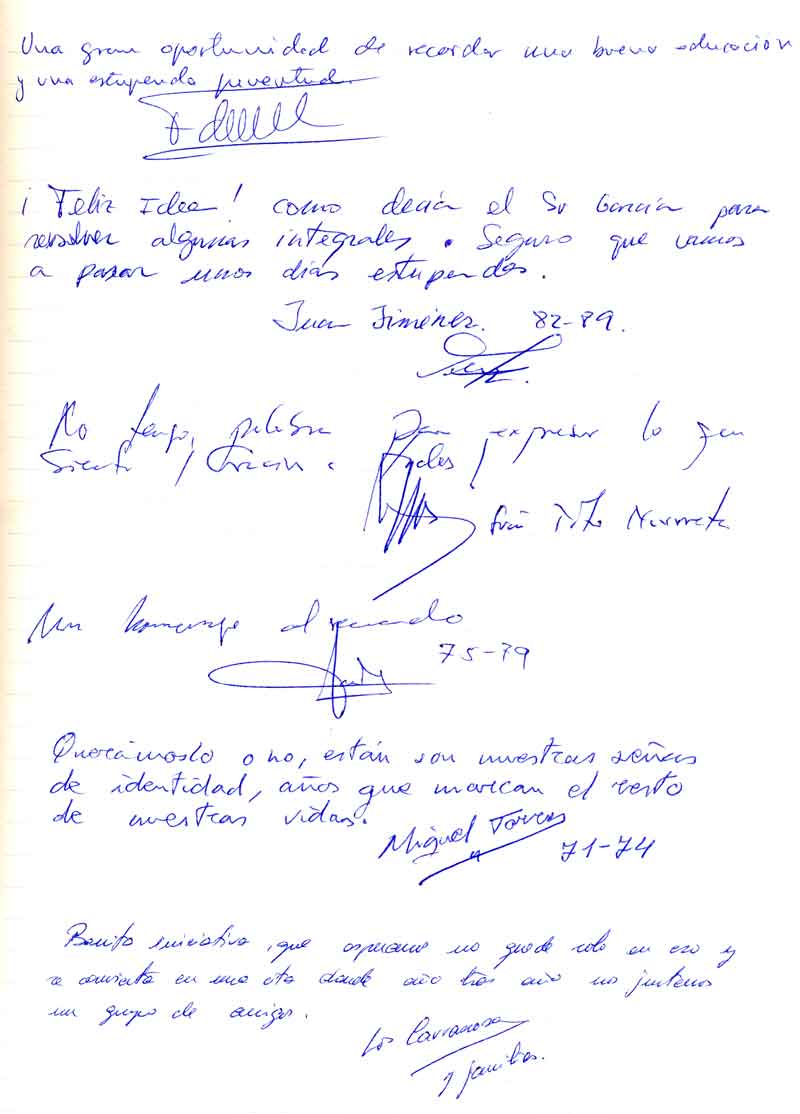 Una gran oportunidad de recordar una buena educacion
y una estupenda juventud.
¡Feliz Idea! como decía el Sr García para
resolver algunas integrales. Seguro que vamos
a pasar unos días estupendos.
Juan Jiménez. 82-89.
No tengo palabra para expresar lo que
siento ¡Gracias a todos!
Navarrete
Un homenaje al recuerdo
75-79
Querámoslo o no, están son nuestras señas
de identidad, años que marcan el resto
de nuestras vidas.
Miguel Torres
71-74
Bonita iniciativa, que esperamos no quede solo en eso y
se convierta en una cita donde año tras año nos juntemos
un grupo de amigos.
Los Carranosa
y familias.